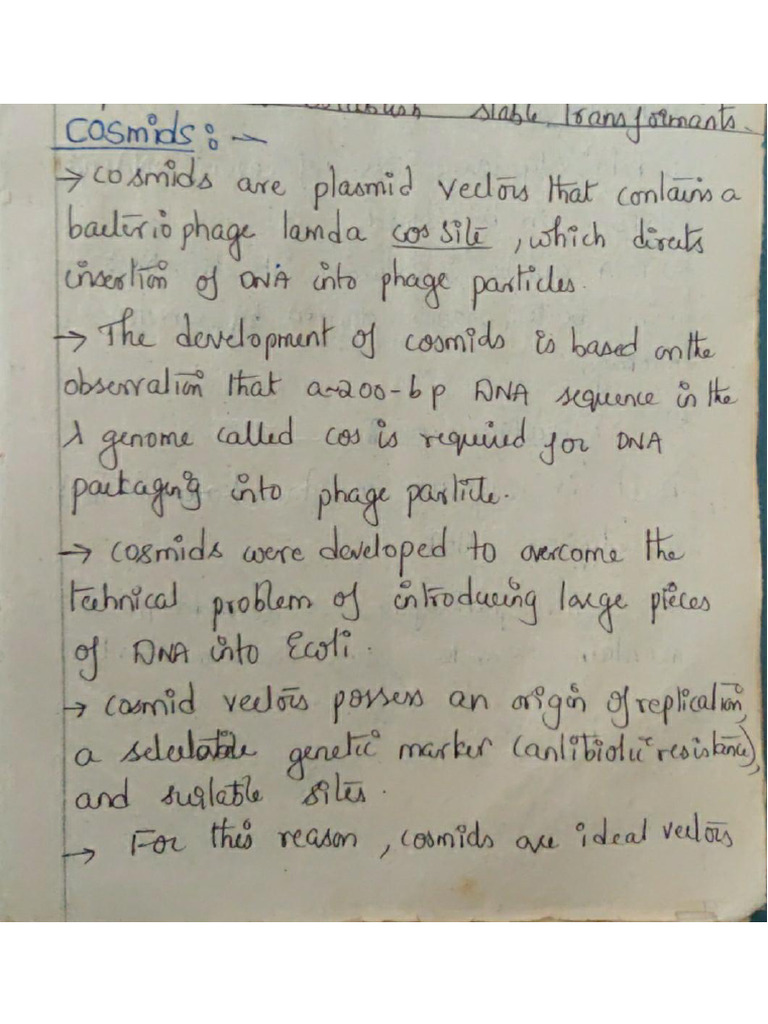 stable transformants.
Cosmids :-
→ cosmids are plasmid vectors that contains a
bacteriophage lamda cos site, which directs
insertion of DNA into phage particles.
→ The development of cosmids is based on the
observation that a~200-bp DNA sequence in the
λ genome called cos is required for DNA
packaging into phage particle.
→ cosmids were developed to overcome the
technical problem of introducing large pieces
of DNA into Ecoli.
→ cosmid vectors possess an origin of replication,
a selectable genetic marker (antibiotic resistance),
and suitable sites.
→ For this reason, cosmids are ideal vectors